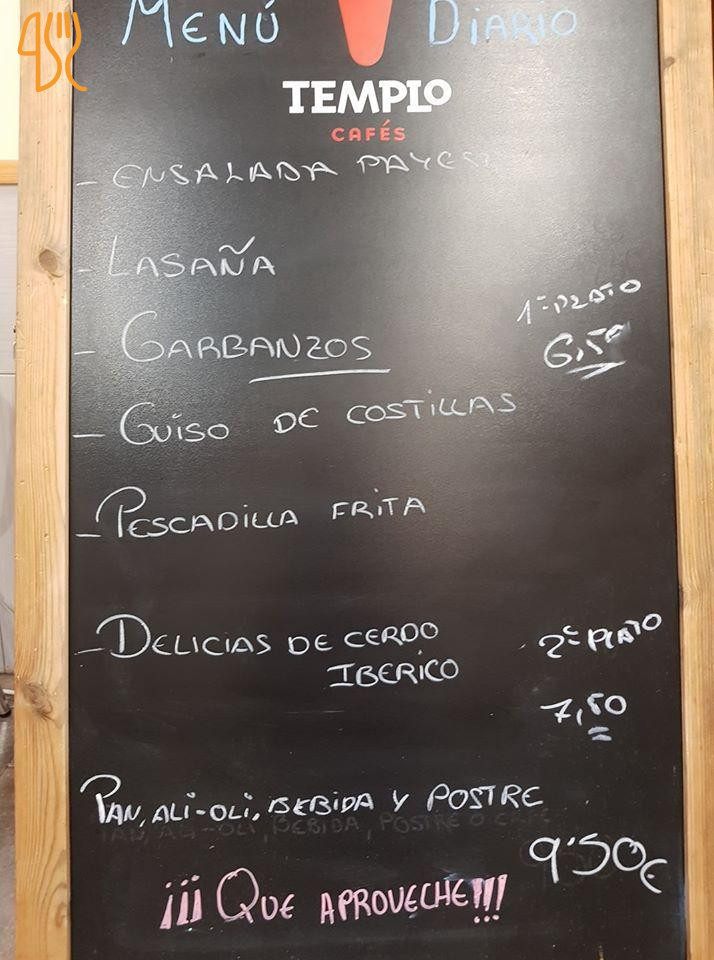 MENÚ DIARIO
TEMPLO
CAFÉS
- ENSALADA PAYES
- LASAÑA
1º PLATO
- GARBANZOS
6,50
- GUISO DE COSTILLAS
- PESCADILLA FRITA
- DELICIAS DE CERDO
2º PLATO
IBERICO
7,50
PAN, ALI-OLI, BEBIDA Y POSTRE
PAN, ALI-OLI, BEBIDA, POSTRE O CAFE
9'50€
¡¡¡QUE APROVECHE!!!